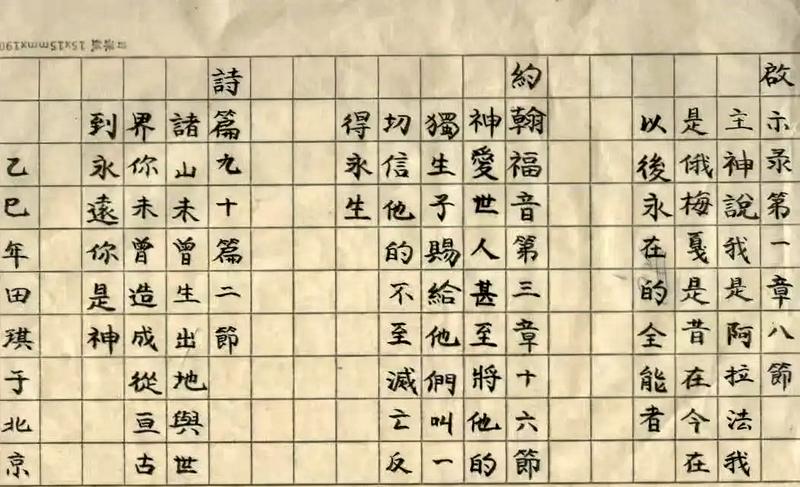 啟示录第一章八節
主神說我是阿拉法我
是俄梅戛是昔在今在
以後永在的全能者
約翰福音第三章十六節
神愛世人甚至將他的
獨生子賜給他們叫一
切信他的不至滅亡反
得永生
詩篇九十篇二節
諸山未曾生出地與世
界你未曾造成從亘古
到永遠你是神
乙巳年田琪于北京